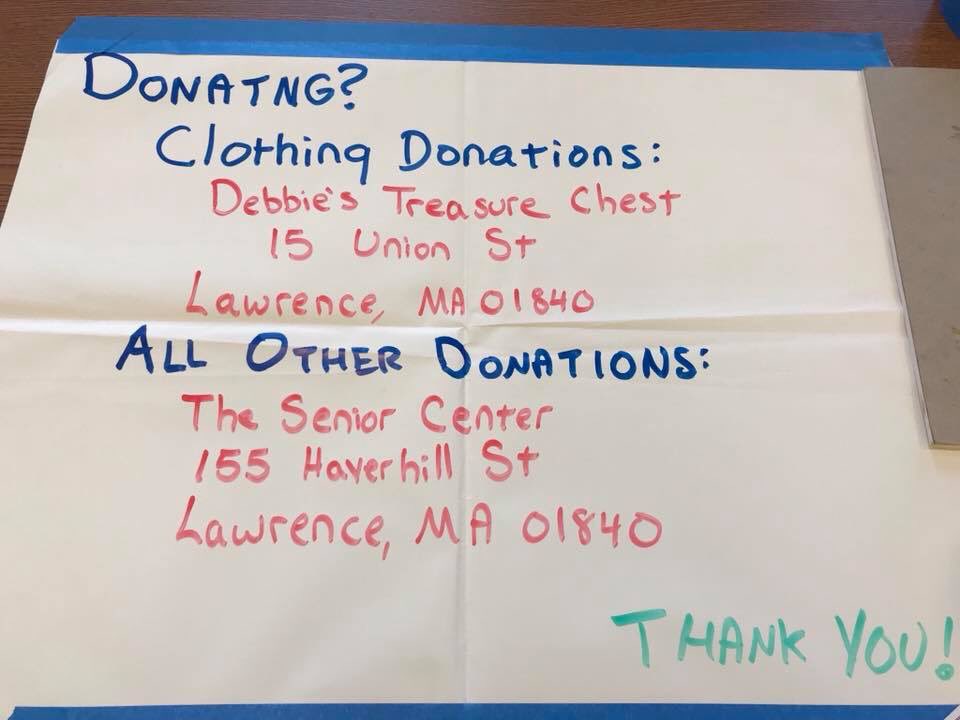 DONATNG?
Clothing Donations:
Debbie's Treasure Chest
15 Union St
Lawrence, MA 01840
ALL OTHER DONATIONS:
The Senior Center
155 Haverhill St
Lawrence, MA 01840
THANK YOU!